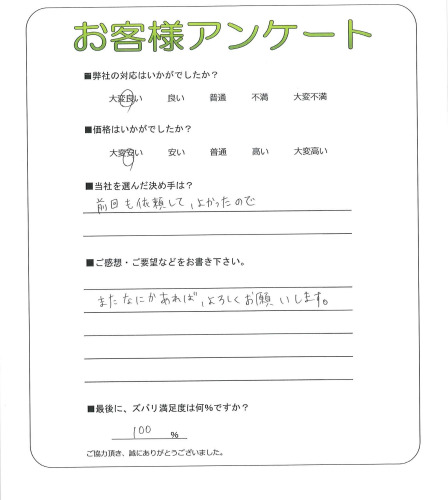 お客様アンケート
■弊社の対応はいかがでしたか？
大変良い 良い 普通 不満 大変不満
■価格はいかがでしたか？
大変安い 安い 普通 高い 大変高い
■当社を選んだ決め手は？
前回も依頼して、よかったので
■ご感想・ご要望などをお書き下さい。
またなにかあれば、よろしくお願いします。
■最後に、ズバリ満足度は何％ですか？
100 ％
ご協力頂き、誠にありがとうございました。